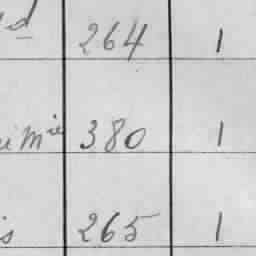 d 264 1
M^ie 380 1
is 265 1